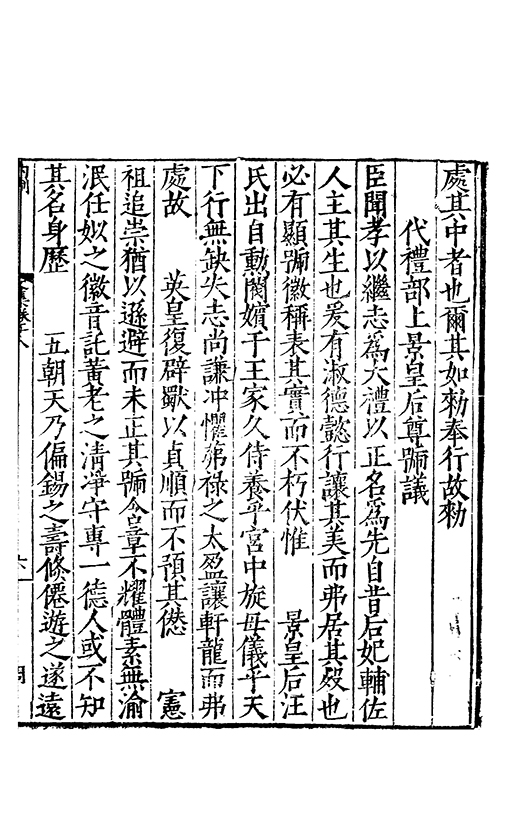 處其中者也爾其如勑奉行故勑
代禮部上景皇后尊號議
臣聞孝以繼志爲大禮以正名爲先自昔后妃輔佐
人主其生也爰有淑德懿行讓其美而弗居其殁也
必有顯號徽稱表其實而不朽伏惟 景皇后汪
氏出自勳閥嬪于王家久侍養乎宮中旋母儀乎天
下行無缺失志尚謙冲懼茀祿之太盈讓軒龍而弗
處故 英皇復辟獸以貞順而不預其愆 憲
祖追崇猶以遜避而未正其號令章不耀體素無渝
泯任姒之徽音託黄老之清凈守專一德人或不知
其名身歷 五朝天乃偏錫之壽倏僊遊之遂遠